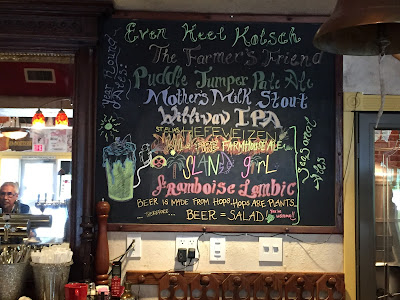 Year Round
Ales:
Even Keel Kolsch
The Farmer's Friend
Puddle Jumper Pale Ale
Mother's Milk Stout
IPA
HEFEWEIZEN
FARMHOUSE ALE
ISLAND GIRL
Framboise Lambic
Seasonal
Ales
BEER IS MADE FROM HOPS, HOPS ARE PLANTS,
...THEREFORE...
BEER = SALAD!
You're
Welcome!